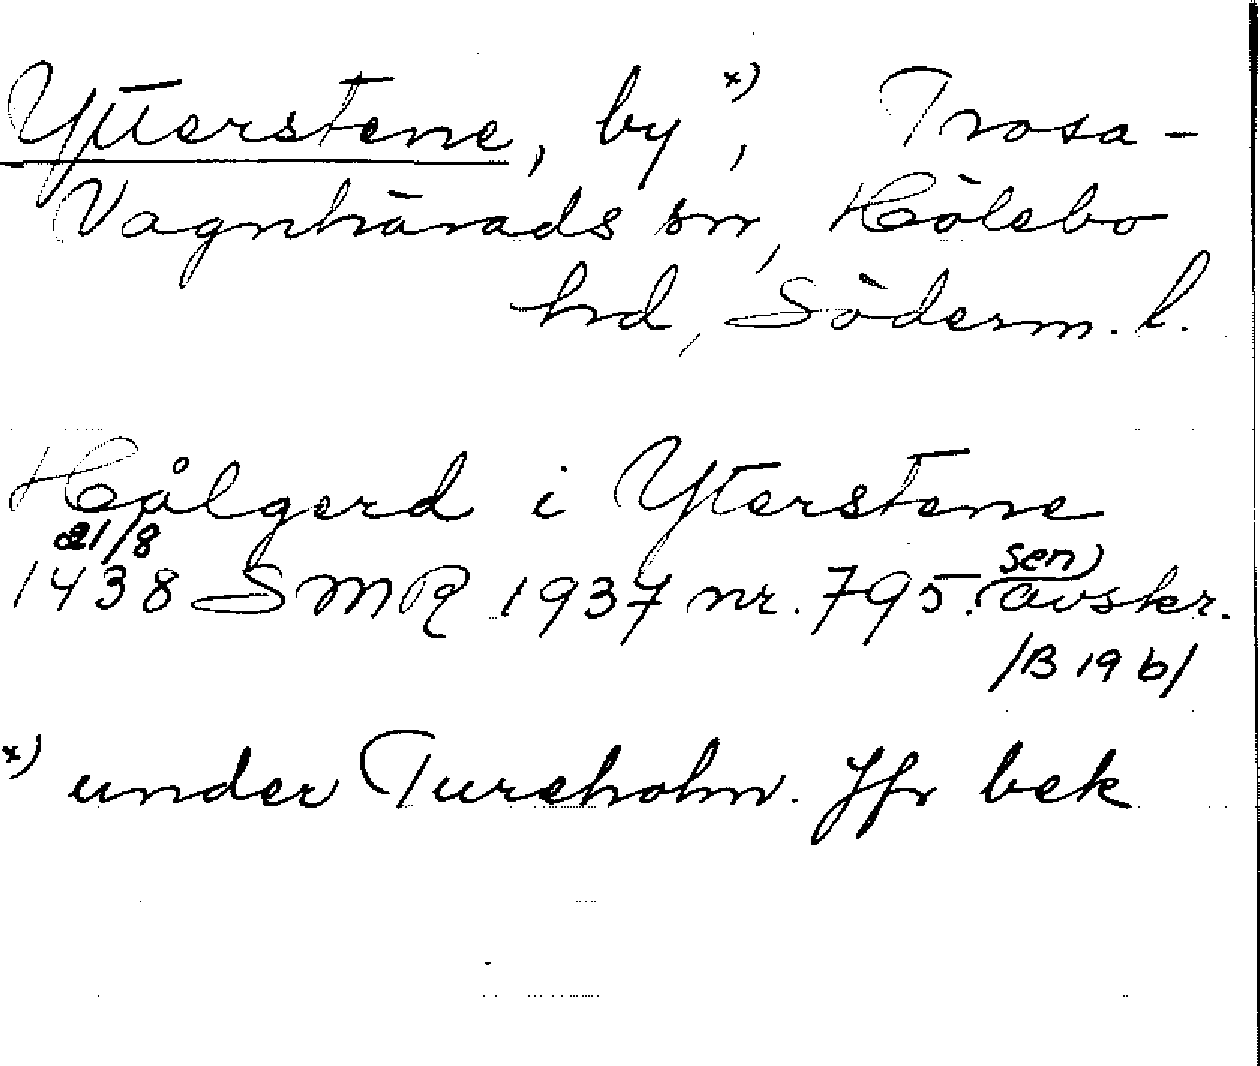 Ytterstene, by x), Trosa-
Vagnhärads sn, Hölebo
hd, Söderm. l.
Hålgerd i Yterstene
21/8
1438 SMR 1937 nr. 795. sen avskr.
/B 19 b/
x) under Tureholm. Jfr bek